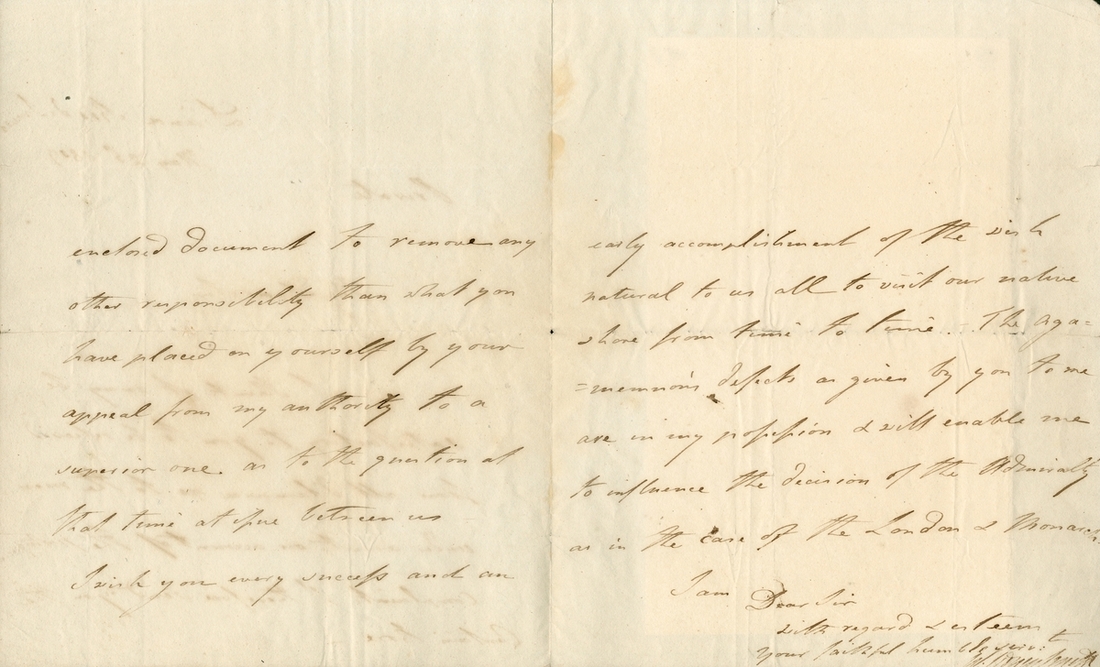 enclosed document to remove any
other responsibility than what you
have placed on yourself by your
appeal from my authority to a
superior one. as to the question at
that time at issue between us
I wish you every success and an
early accomplishment of the wish
natural to us all to visit our native
shore from time to time. The Aga=
=memnon's defects as given by you to me
are in my possession & will enable me
to influence the decision of the Admiralty
as in the case of the London & Monarch
I am Dear Sir
with regard & esteem
your faithful humble servt
Private